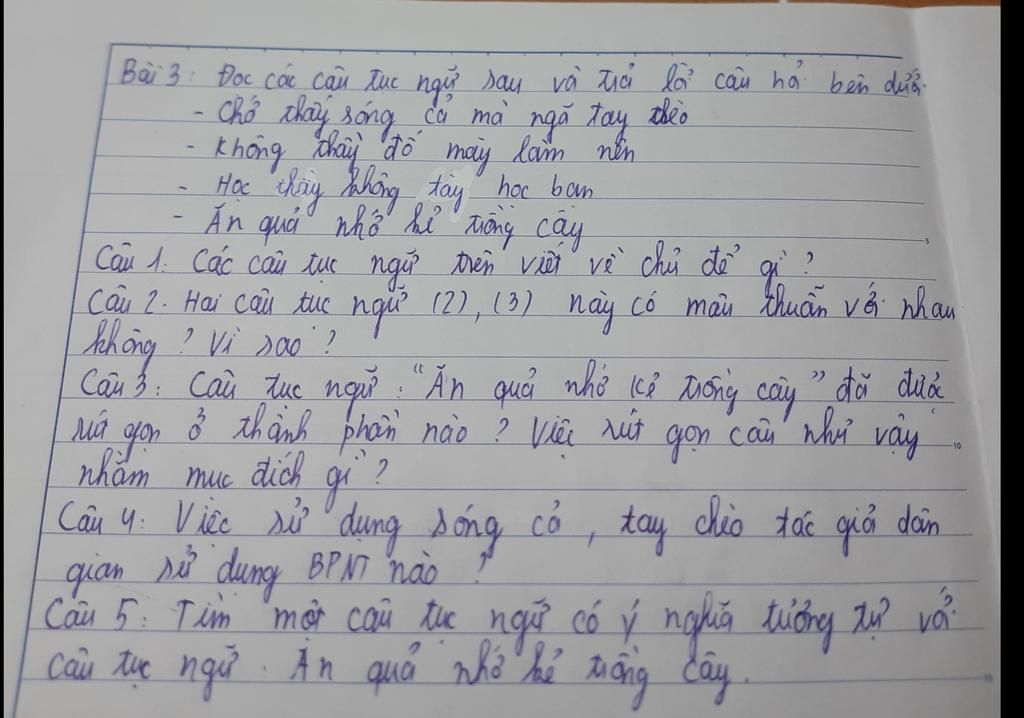 Bài 3: Đọc các câu tục ngữ sau và trả lời câu hỏ bên dưới.
- Chớ thấy sóng cả mà ngã tay chèo
- Không thầy đố mày làm nên
- Học thầy không tày học bạn
- Ăn quả nhớ kẻ trồng cây
Câu 1. Các câu tục ngữ trên viết về chủ đề gì?
Câu 2. Hai câu tục ngữ (2), (3) này có mâu thuẫn với nhau
không? Vì sao?
Câu 3: Câu tục ngữ: "Ăn quả nhớ kẻ trồng cây" đã được
rút gọn ở thành phần nào? Việc rút gọn câu như vậy
nhằm mục đích gì?
Câu 4: Việc sử dụng sóng cả, tay chèo tác giả dân
gian sử dụng BPNT nào?
Câu 5: Tìm một câu tục ngữ có ý nghĩa tương tự với
câu tục ngữ. Ăn quả nhớ kẻ trồng cây.